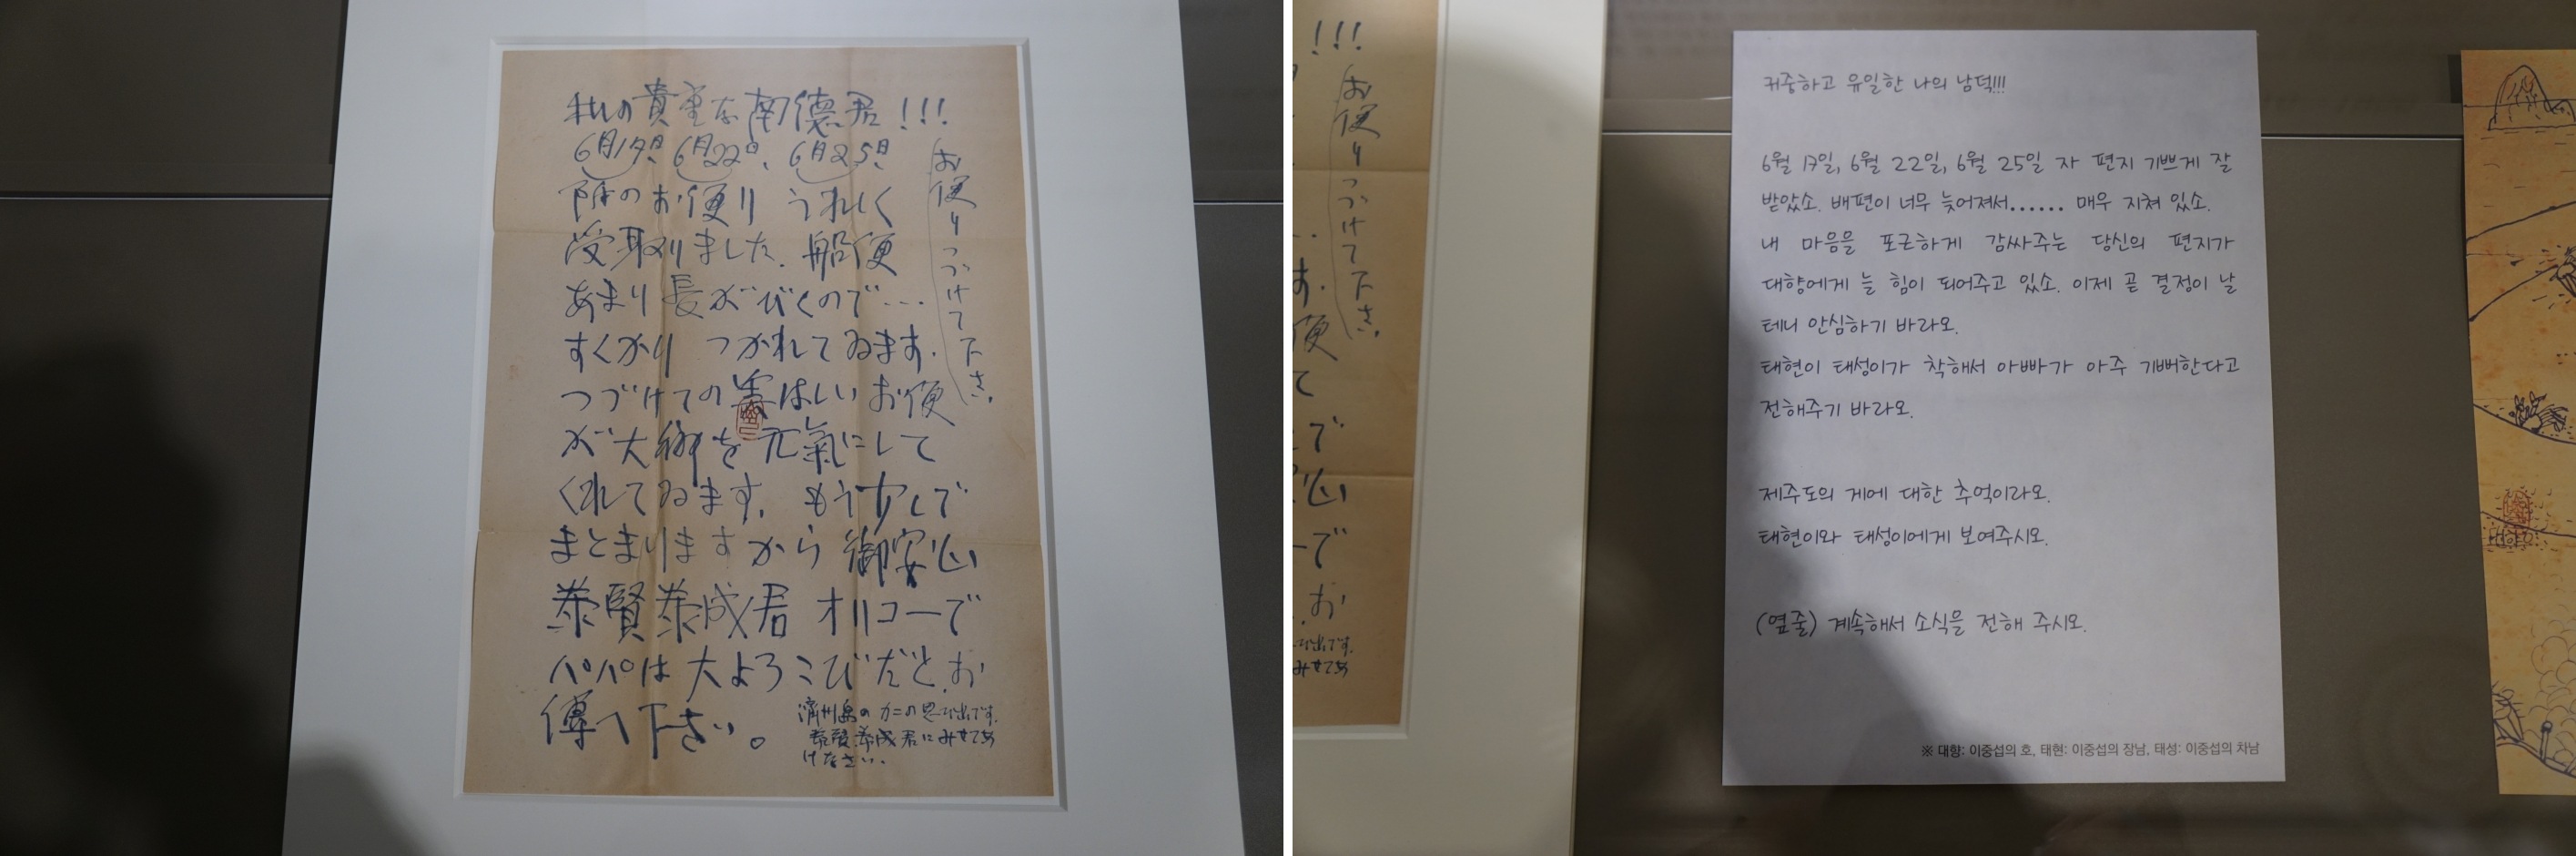 私の貴重な南徳君!!!
6月17日、6月22日、6月25日
附のお便り うれしく
受取りました. 船便
あまり長がびくので...
すくかり つかれてゐます.
つづけての はしいお便
が大郷を元氣にして
くれてゐます. もう少しで
まとまりますから 御安心
泰賢泰成君 オリコーで
パパは大よろこびだと.お
傳へ下さい。
済州島のカニの思ひ出です.
泰賢泰成君にみせてあ
げなさい.
お便りつづけて下さい.
!!!
お便りつづけて下さい.
す.
便
て
で
心
で
.お
ひ出です.
みせてあ
귀중하고 유일한 나의 남덕!!!
6월 17일, 6월 22일, 6월 25일 자 편지 기쁘게 잘
받았소. 배편이 너무 늦어져서...... 매우 지쳐 있소.
내 마음을 포근하게 감싸주는 당신의 편지가
대향에게 늘 힘이 되어주고 있소. 이제 곧 결정이 날
테니 안심하기 바라오.
태현이 태성이가 착해서 아빠가 아주 기뻐한다고
전해주기 바라오.
제주도의 게에 대한 추억이라오.
태현이와 태성이에게 보여주시오.
(옆줄) 계속해서 소식을 전해 주시오.
※ 대향: 이중섭의 호, 태현: 이중섭의 장남, 태성: 이중섭의 차남